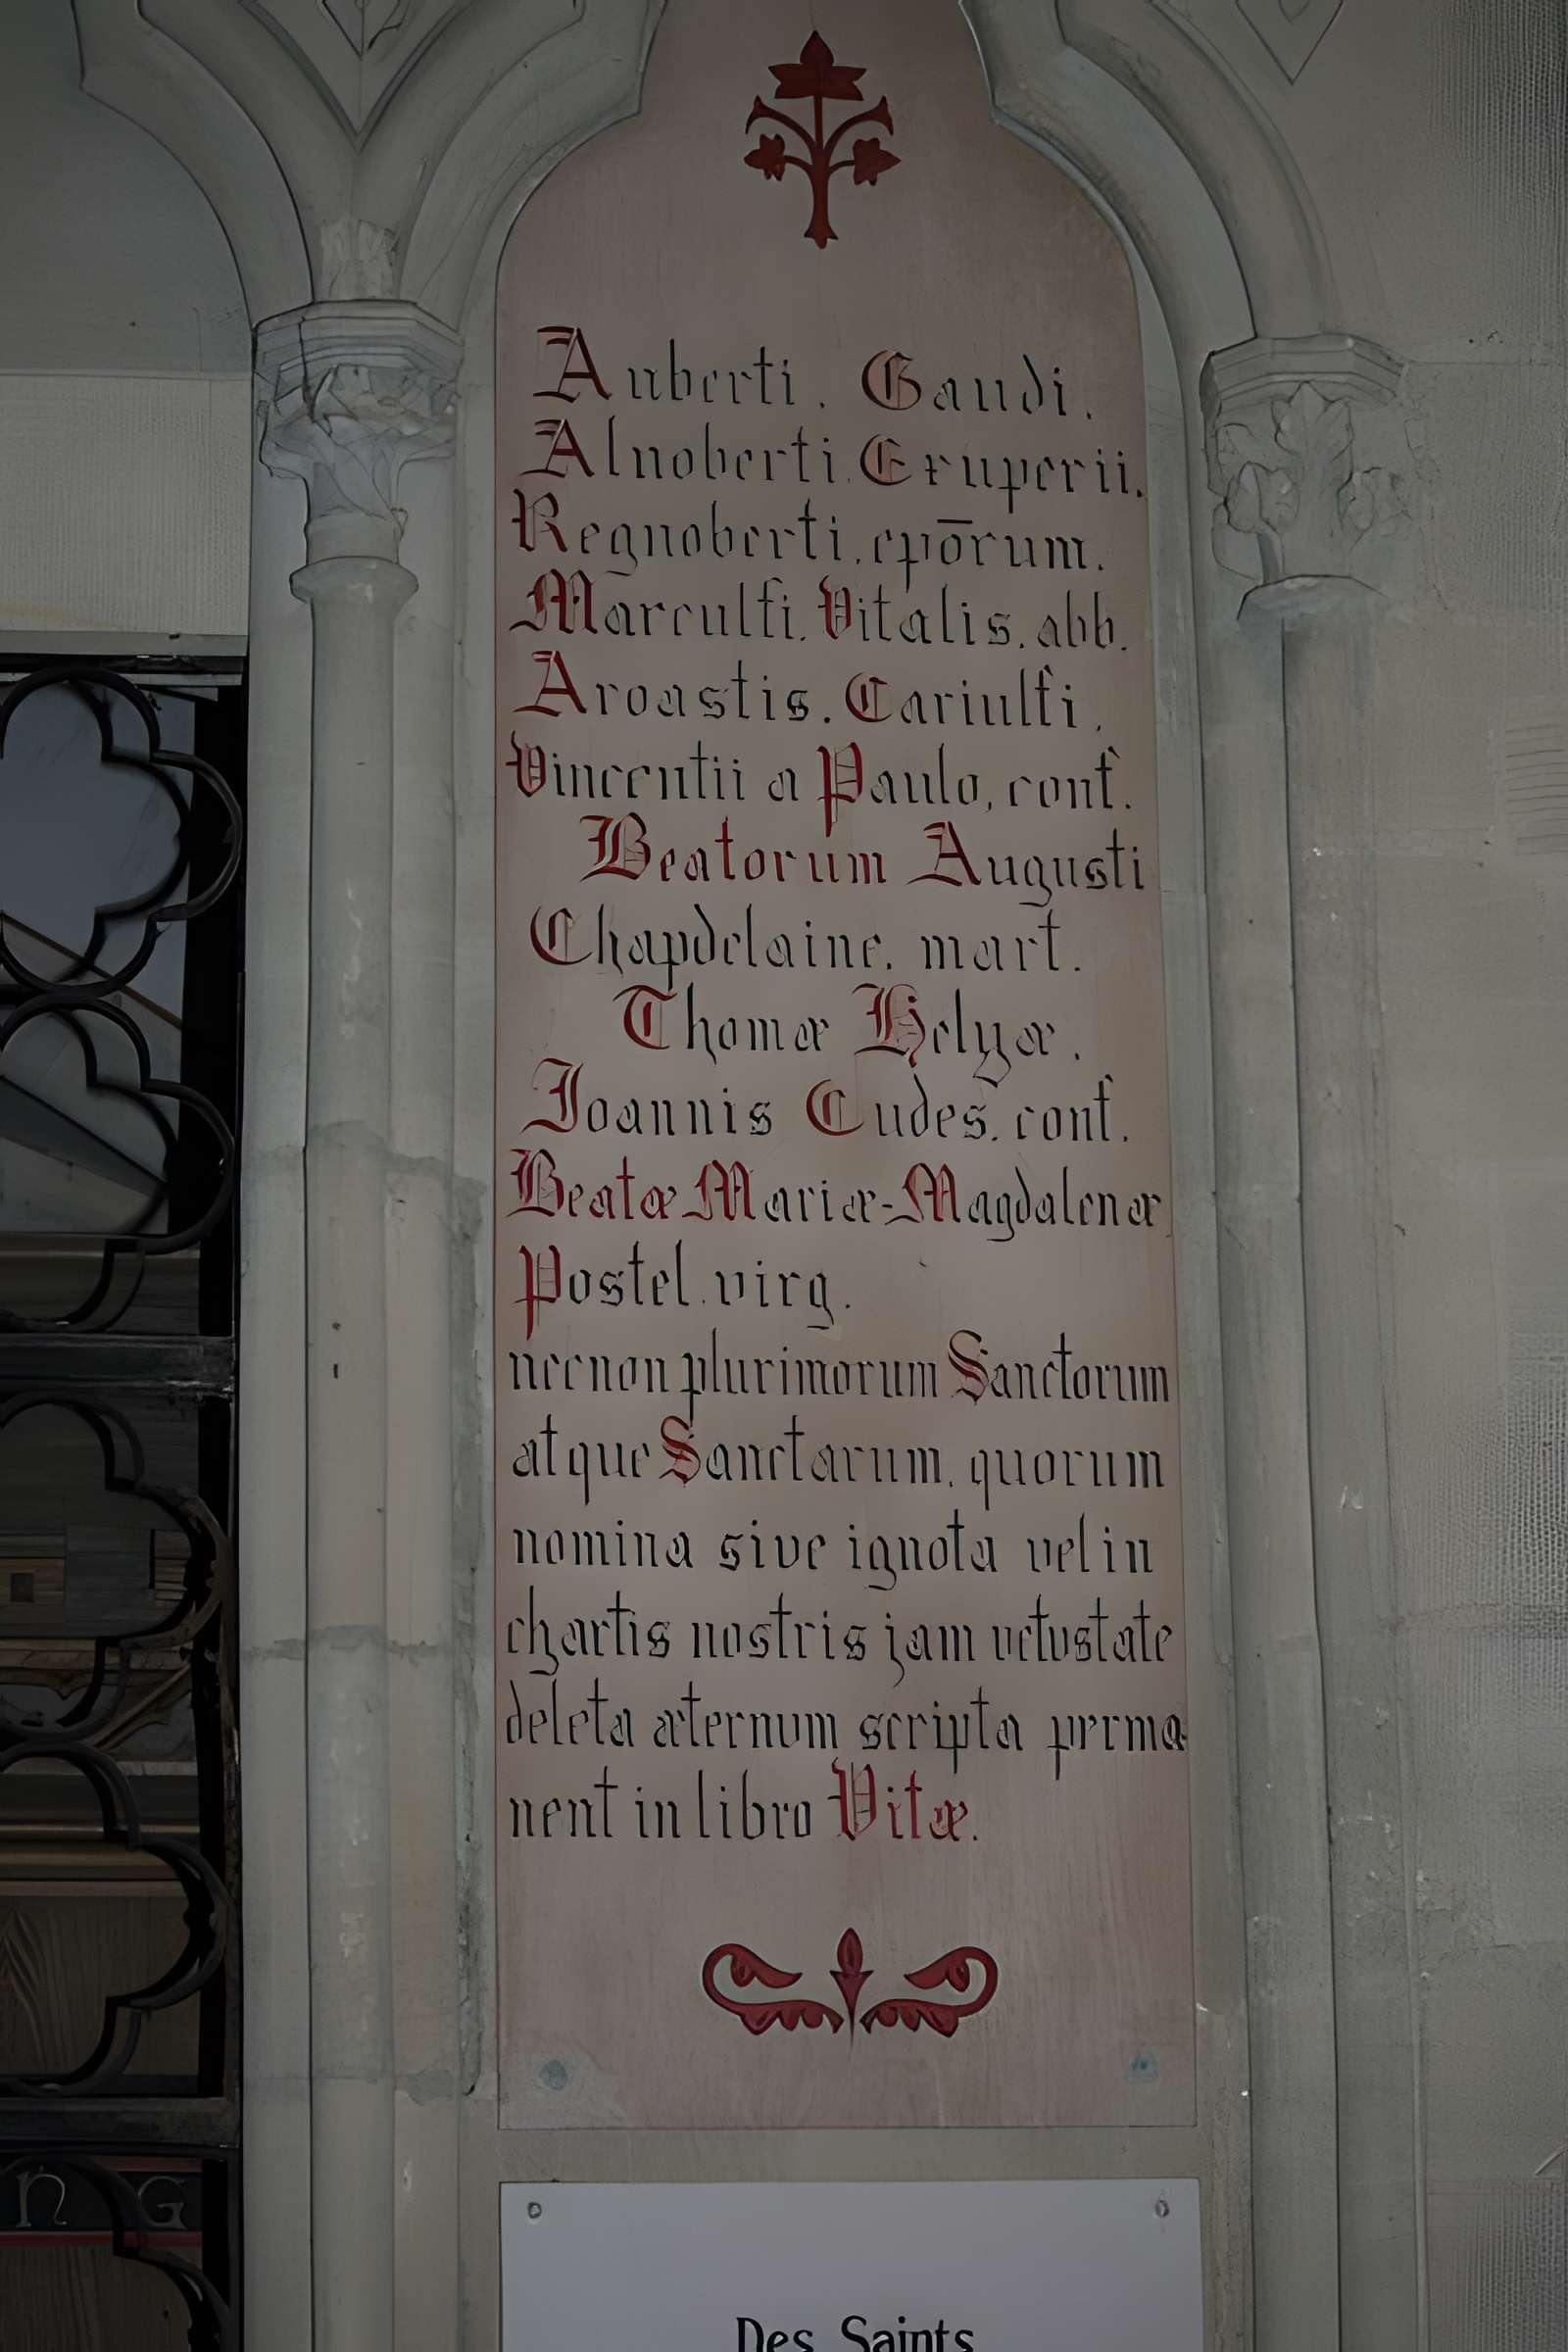 Auberti. Gaudi.
Alnoberti. Exuperii.
Regnoberti. epōrum.
Marculfi. Vitalis. abb.
Aroastis. Cariulfi.
Vincentii a Paulo, conf.
Beatorum Augusti
Chapdelaine. mart.
Thomæ Helyæ.
Joannis Eudes. conf.
Beatæ Mariæ-Magdalenæ
Postel. virg.
necnon plurimorum Sanctorum
atque Sanctarum. quorum
nomina sive ignota vel in
chartis nostris jam vetustate
deleta æternum scripta perma-
nent in libro Vitæ.
n G
Des Saints